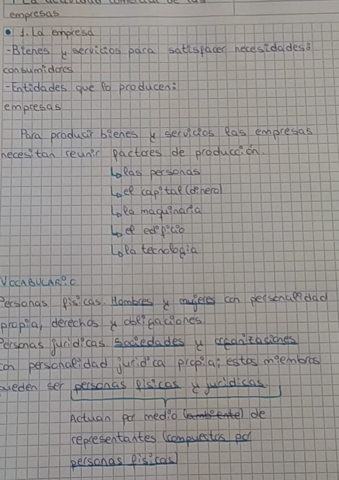 1. La actividad comercial de las
empresas
• 1. La empresa
-Bienes y servicios para satisfacer necesidades:
consumidores
-Entidades que lo producen:
empresas
Para producir bienes y servicios las empresas
necesitan reunir factores de producción.
↳las personas
↳el capital (dinero)
↳la maquinaria
↳el edificio
↳la tecnología
VOCABULARIO
Personas físicas Hombres y mujeres con personalidad
propia, derechos y obligaciones
Personas jurídicas sociedades y organizaciones
con personalidad jurídica propia; estos miembros
pueden ser personas físicas y jurídicas
Actuan por medio (ambiente) de
representantes (compuestos por
personas físicas)